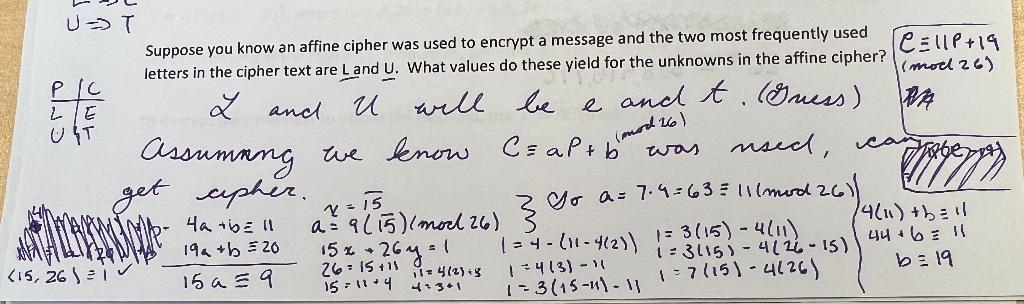 U ⇒ T
Suppose you know an affine cipher was used to encrypt a message and the two most frequently used
letters in the cipher text are L and U. What values do these yield for the unknowns in the affine cipher?
C ≡ 11P + 19
(mod 26)
P | C
L | E
U | T
L and U will be e and t. (Guess)
Assuming we know C ≡ aP + b (mod 26) was used, can
get cipher.
4a + b ≡ 11
19a + b ≡ 20
15a ≡ 9
(15, 26) = 1 ✓
x = 15̅
a = 9(15̅)(mod 26)
15x + 26y = 1
26 = 15 + 11
15 = 11 + 4
11 = 4(2) + 3
4 = 3 + 1
1 = 4 - (11 - 4(2))
1 = 4(3) - 11
1 = 3(15 - 11) - 11
So a = 7·9 = 63 ≡ 11 (mod 26)
1 = 3(15) - 4(11)
1 = 3(15) - 4(26 - 15)
1 = 7(15) - 4(26)
4(11) + b ≡ 11
44 + b ≡ 11
b ≡ 19